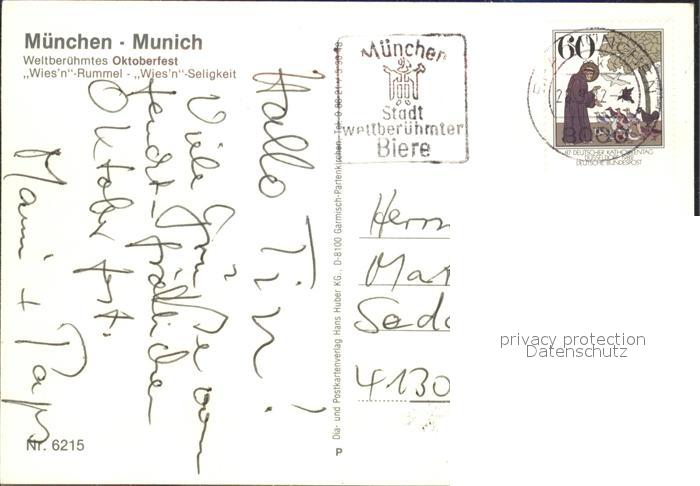 München · Munich
Weltberühmtes Oktoberfest
„Wies'n“-Rummel - „Wies'n“-Seligkeit
Hallo Tim!
Viele Grüße vom
feucht-fröhlichen
Oktoberfest.
Mami + Paps
Nr. 6215
Dia- und Postkartenverlag Hans Huber KG., D-8100 Garmisch-Partenkirchen, Tel. 0 88 21
P
München
Stadt
weltberühmter
Biere
60
87. DEUTSCHER KATHOLIKENTAG
DÜSSELDORF 1982
DEUTSCHE BUNDESPOST
MÜNCHEN
Herrn
Mar
4130
privacy protection
Datenschutz